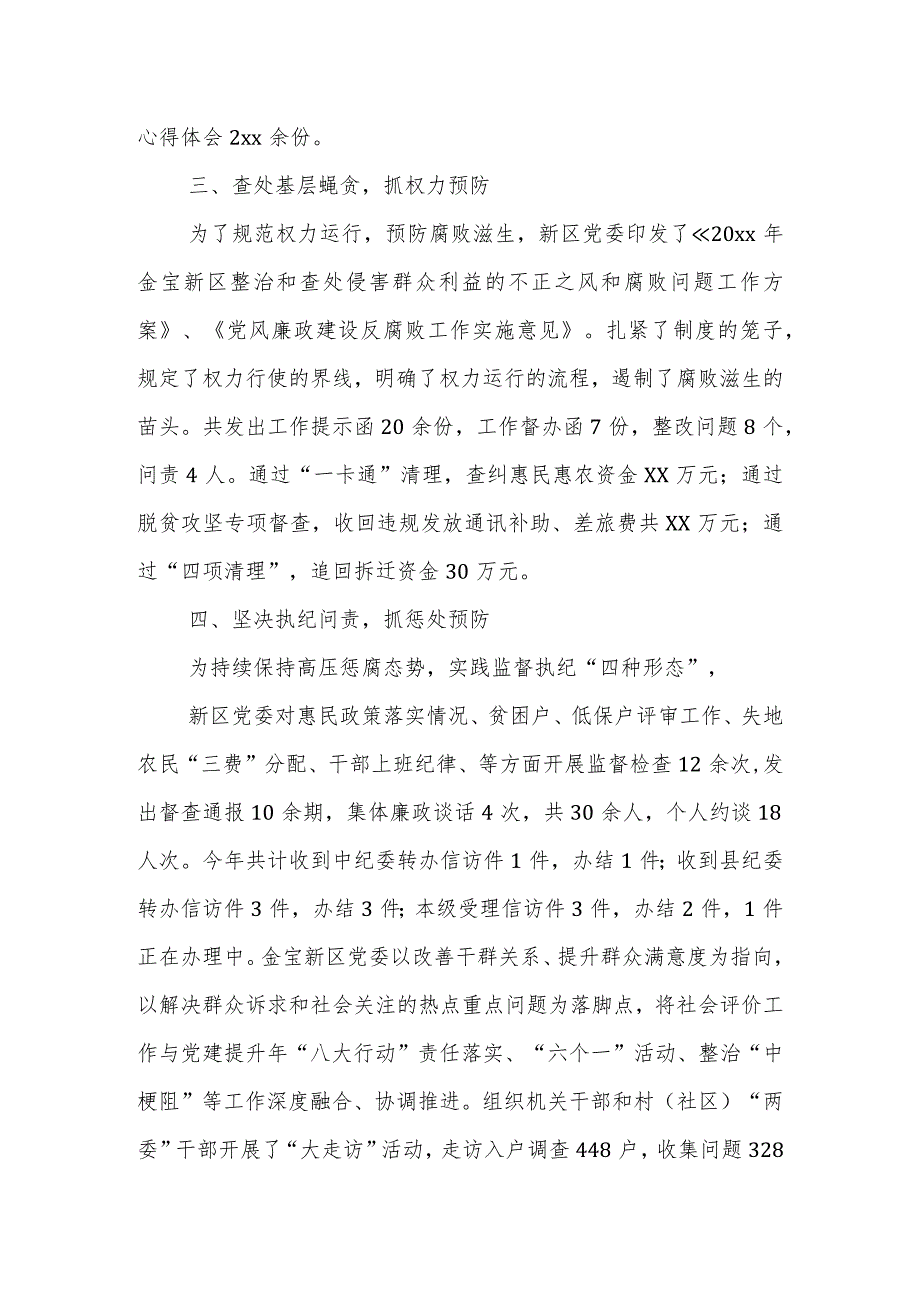 心得体会 2xx 余份。
三、查处基层蝇贪，抓权力预防
为了规范权力运行，预防腐败滋生，新区党委印发了≪20xx 年
金宝新区整治和查处侵害群众利益的不正之风和腐败问题工作方
案》、《党风廉政建设反腐败工作实施意见》。扎紧了制度的笼子，
规定了权力行使的界线，明确了权力运行的流程，遏制了腐败滋生的
苗头。共发出工作提示函 20 余份，工作督办函 7 份，整改问题 8 个，
问责 4 人。通过“一卡通”清理，查纠惠民惠农资金 XX 万元；通过
脱贫攻坚专项督查，收回违规发放通讯补助、差旅费共 XX 万元；通
过“四项清理”，追回拆迁资金 30 万元。
四、坚决执纪问责，抓惩处预防
为持续保持高压惩腐态势，实践监督执纪“四种形态”，
新区党委对惠民政策落实情况、贫困户、低保户评审工作、失地
农民“三费”分配、干部上班纪律、等方面开展监督检查 12 余次,发
出督查通报 10 余期，集体廉政谈话 4 次，共 30 余人，个人约谈 18
人次。今年共计收到中纪委转办信访件 1 件，办结 1 件；收到县纪委
转办信访件 3 件，办结 3 件；本级受理信访件 3 件，办结 2 件，1 件
正在办理中。金宝新区党委以改善干群关系、提升群众满意度为指向，
以解决群众诉求和社会关注的热点重点问题为落脚点，将社会评价工
作与党建提升年“八大行动”责任落实、“六个一”活动、整治“中
梗阻”等工作深度融合、协调推进。组织机关干部和村（社区）“两
委”干部开展了“大走访”活动，走访入户调查 448 户，收集问题 328